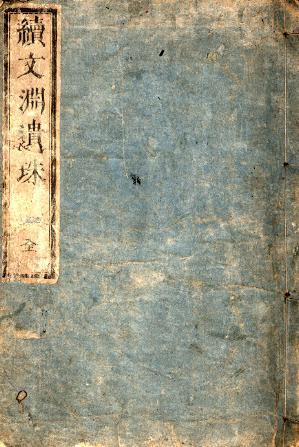 續文淵遺珠 全